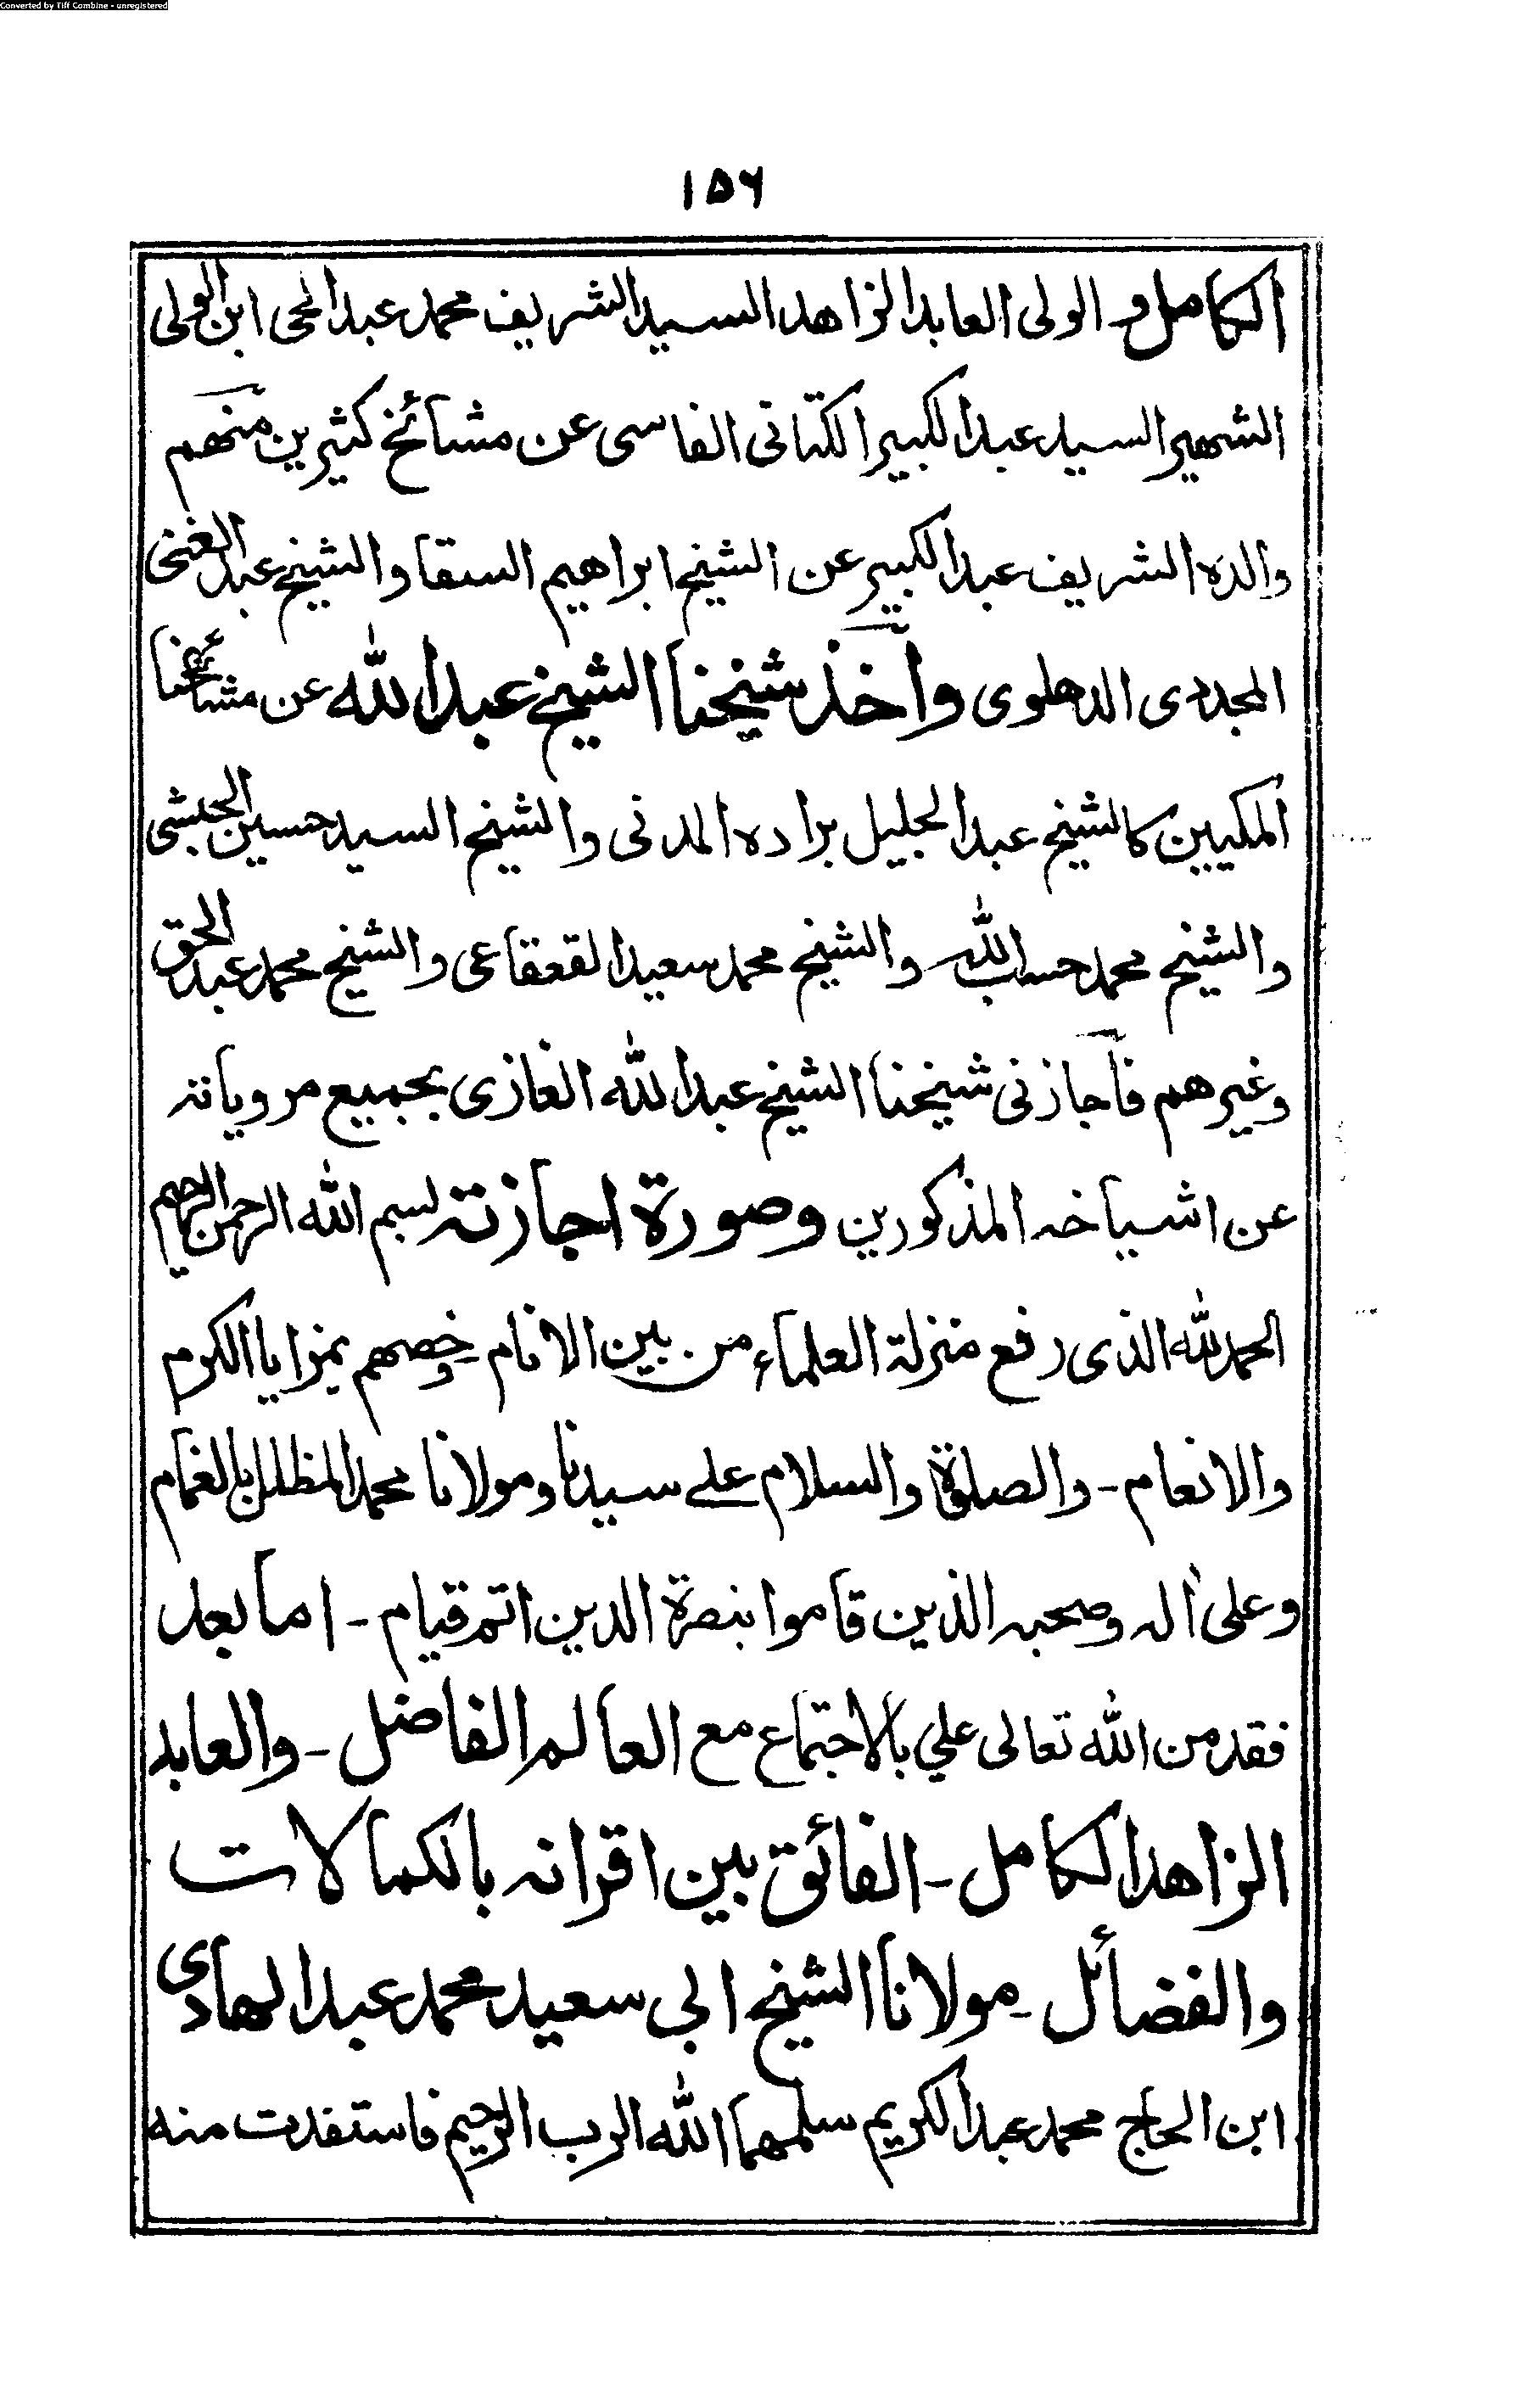 Converted by Tiff Combine - unregistered
١٥٦
الكامل و الولى العابد الزاهد السيد الشريف محمد عبد الحى ابن الولى
الشهير السيد عبد الكبير الكتانى الفاسى عن مشائخ كثيرين منهم
والده الشريف عبد الكبير عن الشيخ ابراهيم السقا والشيخ عبد الغنى
المجددى الدهلوى وأخذ شيخنا الشيخ عبد الله عن مشائخنا
المكيين كالشيخ عبد الجليل براده المدنى والشيخ السيد حسين الحبشى
والشيخ محمد حسب الله والشيخ محمد سعيد القعقاعى والشيخ محمد عبد الحق
وغيرهم فأجازنى شيخنا الشيخ عبد الله الغازى بجميع مروياته
عن اشياخه المذكورين وصورة اجازته بسم الله الرحمن الرحيم
الحمد لله الذى رفع منزلة العلماء من بين الانام - وخصهم بمزايا الكرم
والانعام - والصلوة والسلام على سيدنا ومولانا محمد المظلل بالغمام
وعلى اله وصحبه الذين قاموا بنصرة الدين اتم قيام - اما بعد
فقد من الله تعالى علي بالاجتماع مع العالم الفاضل - والعابد
الزاهد الكامل - الفائق بين اقرانه بالكمالات
والفضائل - مولانا الشيخ ابى سعيد محمد عبد الهادى
ابن الحاج محمد عبد الكريم سلمهما الله الرب الرحيم فاستفدت منه